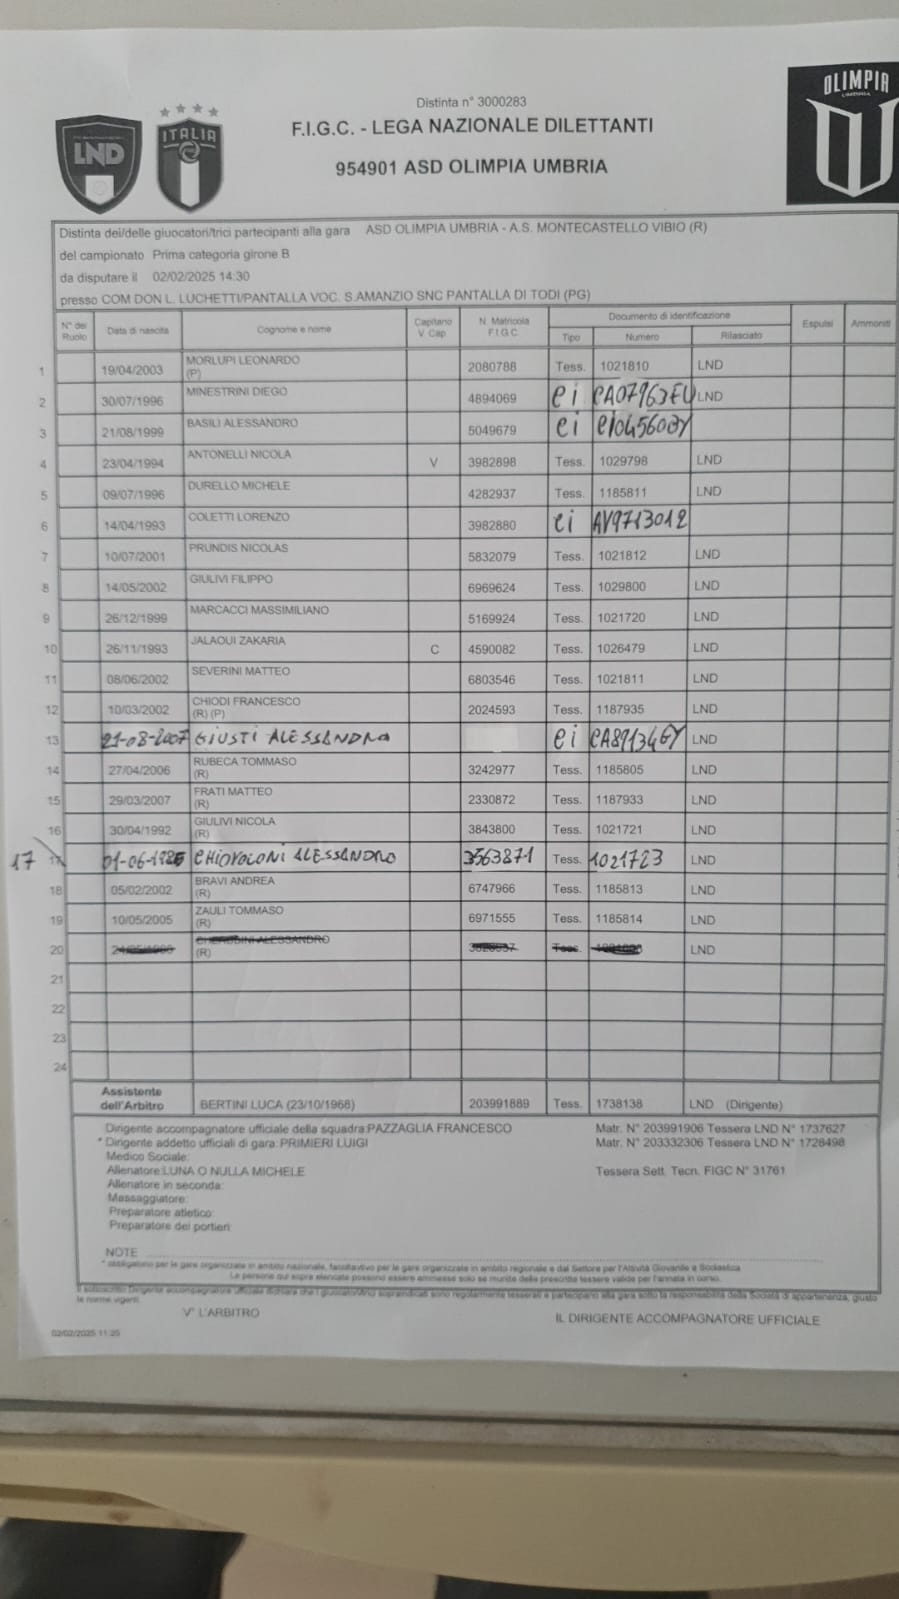 OLIMPIA
UMBRIA
LND
ITALIA
Distinta n° 3000283
F.I.G.C. - LEGA NAZIONALE DILETTANTI
954901 ASD OLIMPIA UMBRIA
Distinta dei/delle giuocatori/trici partecipanti alla gara ASD OLIMPIA UMBRIA - A.S. MONTECASTELLO VIBIO (R)
del campionato Prima categoria girone B
da disputare il 02/02/2025 14:30
presso COM DON L. LUCHETTI/PANTALLA VOC. S.AMANZIO SNC PANTALLA DI TODI (PG)
N° del Ruolo Data di nascita Cognome e nome Capitano V.Cap. N. Matricola F.I.G.C. Documento di identificazione Espulsi Ammoniti
Tipo Numero Rilasciato
1 19/04/2003 MORLUPI LEONARDO (P) 2080788 Tess. 1021810 LND
2 30/07/1996 MINESTRINI DIEGO 4894069 ei CA07963EU LND
3 21/08/1999 BASILI ALESSANDRO 5049679 ei
4 23/04/1994 ANTONELLI NICOLA V 3982898 Tess. 1029798 LND
5 09/07/1996 DURELLO MICHELE 4282937 Tess. 1185811 LND
6 14/04/1993 COLETTI LORENZO 3982880 ei AV9713012
7 10/07/2001 PRUNDIS NICOLAS 5832079 Tess. 1021812 LND
8 14/05/2002 GIULIVI FILIPPO 6969624 Tess. 1029800 LND
9 26/12/1999 MARCACCI MASSIMILIANO 5169924 Tess. 1021720 LND
10 26/11/1993 JALAOUI ZAKARIA C 4590082 Tess. 1026479 LND
11 08/06/2002 SEVERINI MATTEO 6803546 Tess. 1021811 LND
12 10/03/2002 CHIODI FRANCESCO (R) (P) 2024593 Tess. 1187935 LND
13 21-08-2007 GIUSTI ALESSANDRO ei CA89134GY LND
14 27/04/2006 RUBECA TOMMASO (R) 3242977 Tess. 1185805 LND
15 29/03/2007 FRATI MATTEO (R) 2330872 Tess. 1187933 LND
16 30/04/1992 GIULIVI NICOLA (R) 3843800 Tess. 1021721 LND
17 17 01-06-1985 CHIOVOLONI ALESSANDRO 3563871 Tess. 1021723 LND
18 05/02/2002 BRAVI ANDREA (R) 6747966 Tess. 1185813 LND
19 10/05/2005 ZAULI TOMMASO (R) 6971555 Tess. 1185814 LND
20 ALESSANDRO (R) Tess. LND
21
22
23
24
Assistente dell'Arbitro BERTINI LUCA (23/10/1968) 203991889 Tess. 1738138 LND (Dirigente)
Dirigente accompagnatore ufficiale della squadra:PAZZAGLIA FRANCESCO Matr. N° 203991906 Tessera LND N° 1737627
* Dirigente addetto ufficiali di gara: PRIMIERI LUIGI Matr. N° 203332306 Tessera LND N° 1728498
Medico Sociale:
Allenatore:LUNA O NULLA MICHELE Tessera Sett. Tecn. FIGC N° 31761
Allenatore in seconda:
Massaggiatore:
Preparatore atletico:
Preparatore dei portieri:
NOTE
* obbligatorio per le gare organizzate in ambito nazionale, facoltativo per le gare organizzate in ambito regionale e dal Settore per l'Attività Giovanile e Scolastica
Le persone qui sopra elencate possono essere ammesse solo se munite della prescritte tessere valide per l'annata in corso.
Il sottoscritto Dirigente accompagnatore ufficiale dichiara che i giuocatori/trici sopraindicati sono regolarmente tesserati e partecipano alla gara sotto la responsabilità della Società di appartenenza, giusto
le norme vigenti.
V° L'ARBITRO IL DIRIGENTE ACCOMPAGNATORE UFFICIALE
02/02/2025 11:25